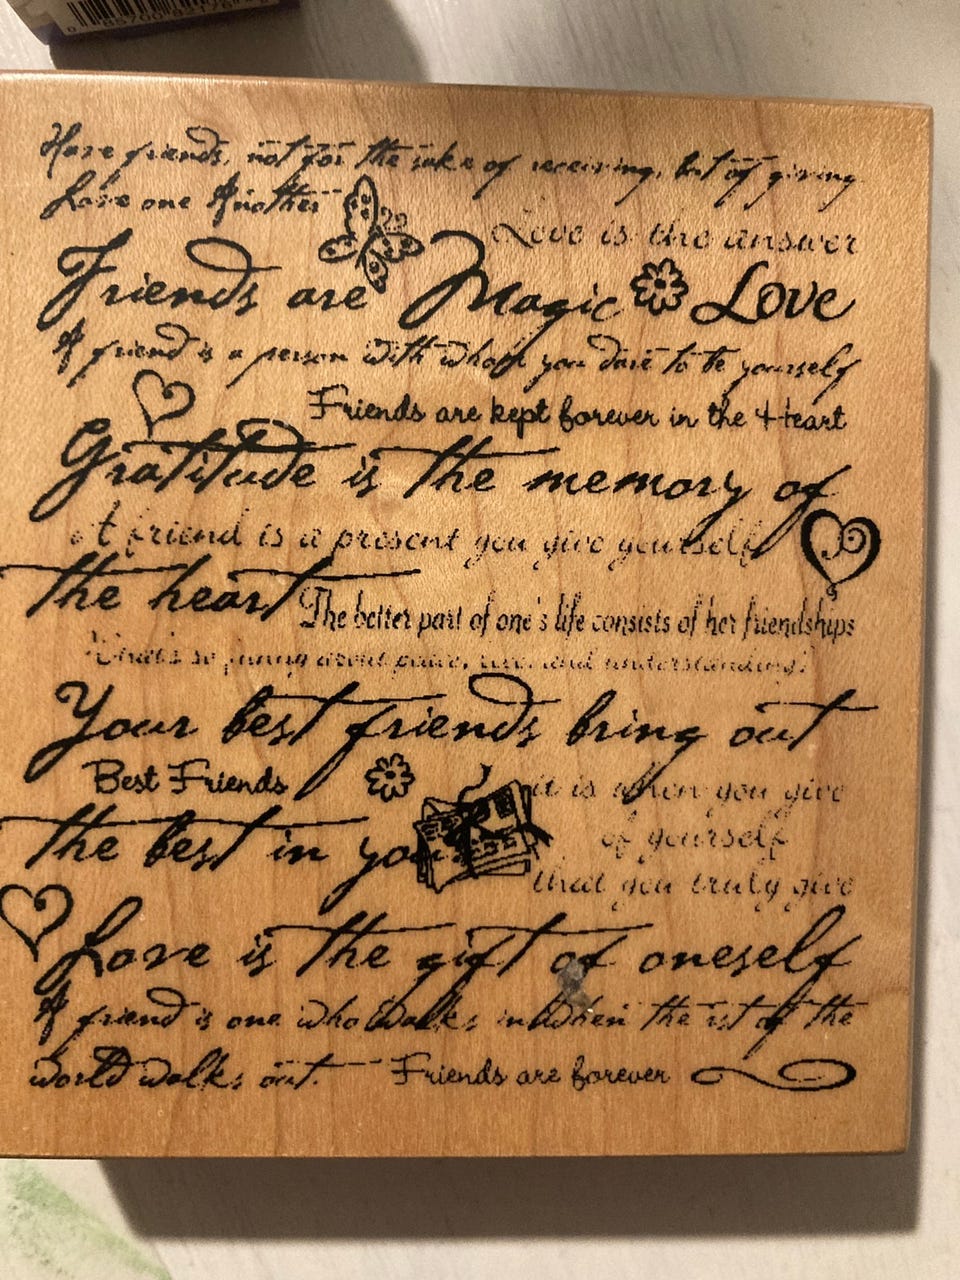 Have friends, not for the sake of receiving, but of giving
Love one Another
Love is the answer
Friends are Magic Love
A friend is a person with whom you dare to be yourself
Friends are kept forever in the Heart
Gratitude is the memory of
A friend is a present you give yourself
the heart
The better part of one's life consists of her friendships
What's so funny about peace, love, and understanding?
Your best friends bring out
Best Friends
it is when you give
of yourself
the best in you
that you truly give
Love is the gift of oneself
A friend is one who walks in when the rest of the
world walks out.
Friends are forever